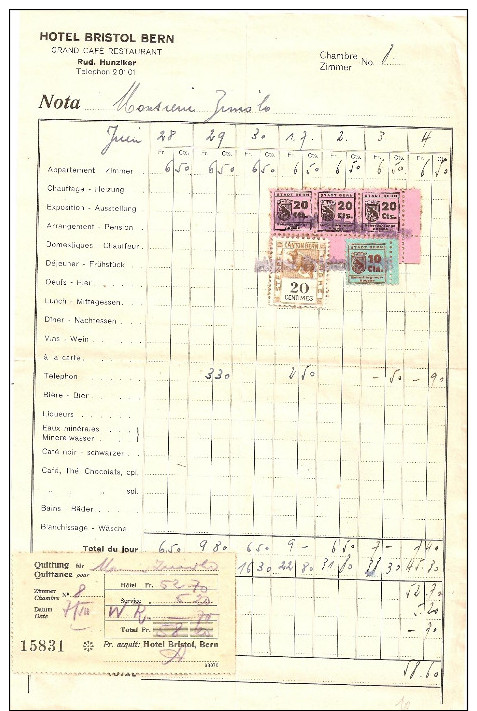 HOTEL BRISTOL BERN
GRAND CAFÉ RESTAURANT
Rud. Hunziker
Telephon 20101
Chambre
Zimmer No.
Nota Monsieur
Juin 28 29 30 1.7. 2. 3 4
Fr. Cts. Fr. Cts. Fr. Cts. Fr. Cts. Fr. Cts. Fr. Cts. Fr. Cts.
Appartement - Zimmer 6 50 6 50 6 50 6 50 6 50 6 50 6 50
Chauffage - Heizung
Exposition - Ausstellung
Arrangement - Pension
Domestiques - Chauffeur
Déjeuner - Frühstück
Oeufs - Eier
Lunch - Mittagessen
Dîner - Nachtessen
Vins - Wein
à la carte
Telephon 3 30 2 50 - 50 - 90
Bière - Bier
Liqueurs
Eaux minérales
Mineralwasser
Café noir - schwarzer
Café, Thé, Chocolats, cpl.
" " " spl.
Bains - Bäder
Blanchissage - Wäsche
Total du jour 6 50 9 80 6 50 9 - 6 50 7 - 7 40
16 30 22 80 31 80 38 30 45 30
52 70
5.20
- 70
58.60
STADT BERN
20
Cts.
STADT BERN
20
Cts.
STADT BERN
20
Cts.
KANTON BERN
20
CENTIMES
STADT BERN
10
Cts.
Quittung für
Quittance pour
Zimmer
Chambre No. 8
Datum
Date
Hôtel Fr. 52.70
Service 5.20
W K. 70
Total Fr. 58.60
15831
Pr. acquit: Hotel Bristol, Bern